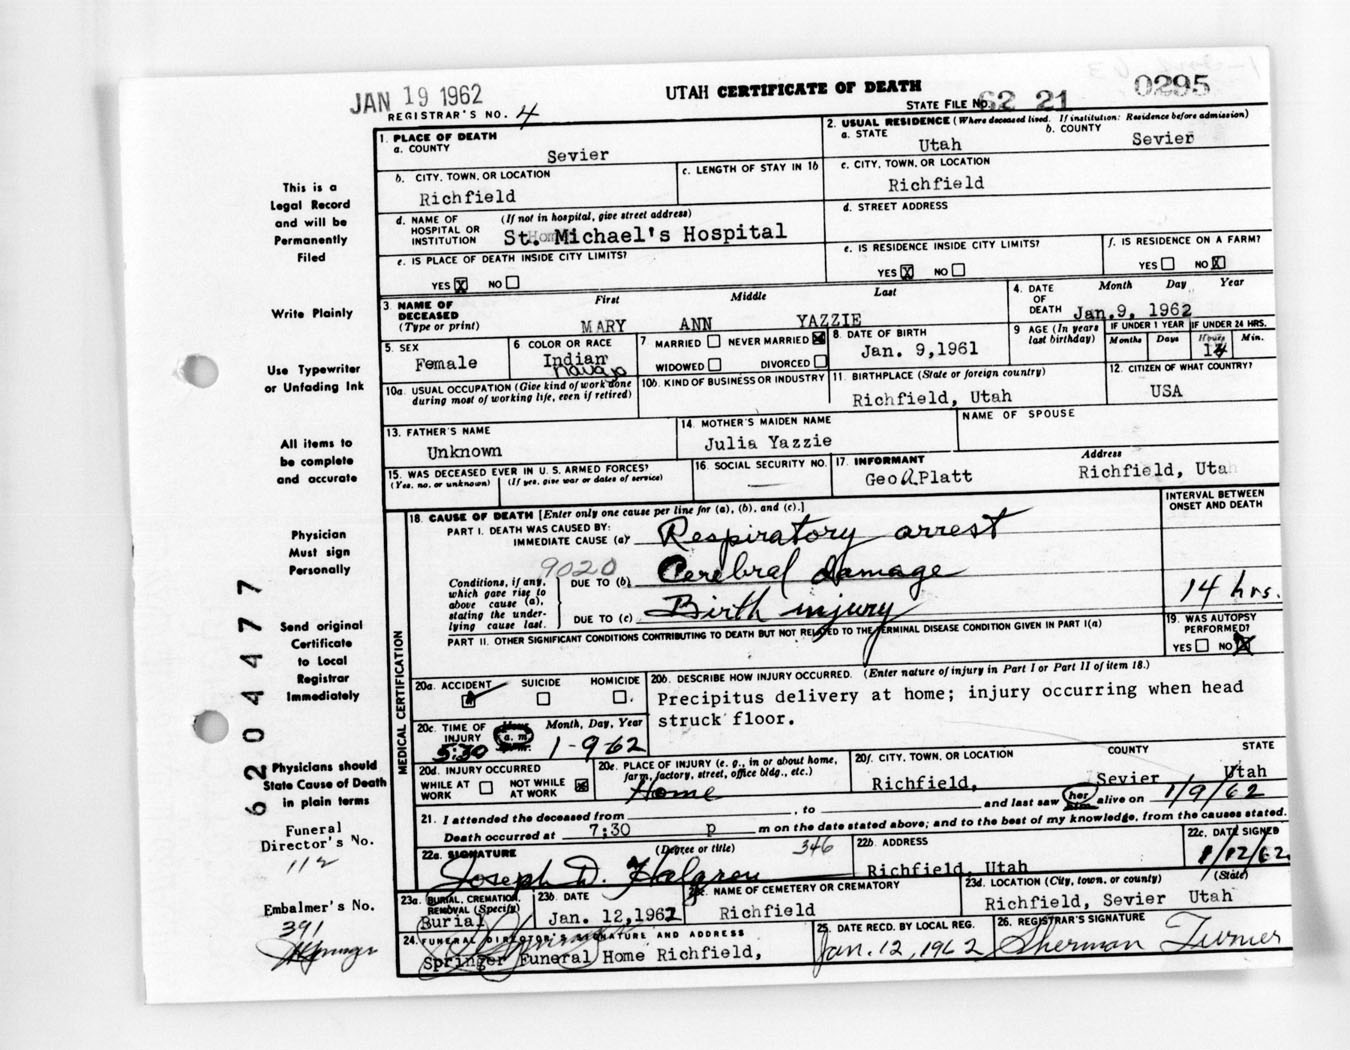 JAN 19 1962
UTAH CERTIFICATE OF DEATH
0295
REGISTRAR'S NO. 4
STATE FILE NO. 62 21
1. PLACE OF DEATH
a. COUNTY
Sevier
2. USUAL RESIDENCE (Where deceased lived. If institution: Residence before admission)
a. STATE
Utah
b. COUNTY
Sevier
b. CITY, TOWN, OR LOCATION
Richfield
c. LENGTH OF STAY IN 1b
c. CITY, TOWN, OR LOCATION
Richfield
d. NAME OF HOSPITAL OR INSTITUTION
(If not in hospital, give street address)
St. Michael's Hospital
d. STREET ADDRESS
e. IS PLACE OF DEATH INSIDE CITY LIMITS?
YES X NO
e. IS RESIDENCE INSIDE CITY LIMITS?
YES X NO
f. IS RESIDENCE ON A FARM?
YES NO X
3 NAME OF DECEASED
(Type or print)
First Middle Last
MARY ANN YAZZIE
4. DATE OF DEATH
Month Day Year
Jan.9, 1962
5. SEX
Female
6 COLOR OR RACE
Indian
Navajo
7 MARRIED NEVER MARRIED X
WIDOWED DIVORCED
8. DATE OF BIRTH
Jan. 9,1961
9 AGE (In years last birthday)
IF UNDER 1 YEAR
Months Days
IF UNDER 24 HRS.
Hours Min.
14
10a. USUAL OCCUPATION (Give kind of work done during most of working life, even if retired)
10b. KIND OF BUSINESS OR INDUSTRY
11. BIRTHPLACE (State or foreign country)
Richfield, Utah
12. CITIZEN OF WHAT COUNTRY?
USA
13. FATHER'S NAME
Unknown
14. MOTHER'S MAIDEN NAME
Julia Yazzie
NAME OF SPOUSE
15. WAS DECEASED EVER IN U. S. ARMED FORCES?
(Yes, no, or unknown) (If yes, give war or dates of service)
16. SOCIAL SECURITY NO.
17. INFORMANT
Geo A Platt
Address
Richfield, Utah
18. CAUSE OF DEATH [Enter only one cause per line for (a), (b), and (c).]
INTERVAL BETWEEN ONSET AND DEATH
PART I. DEATH WAS CAUSED BY:
IMMEDIATE CAUSE (a) Respiratory arrest
9020
Conditions, if any, which gave rise to above cause (a), stating the underlying cause last.
DUE TO (b) Cerebral damage
DUE TO (c) Birth injury
14 hrs.
PART II. OTHER SIGNIFICANT CONDITIONS CONTRIBUTING TO DEATH BUT NOT RELATED TO THE TERMINAL DISEASE CONDITION GIVEN IN PART I(a)
19. WAS AUTOPSY PERFORMED?
YES NO X
MEDICAL CERTIFICATION
20a. ACCIDENT SUICIDE HOMICIDE
20b. DESCRIBE HOW INJURY OCCURRED. (Enter nature of injury in Part I or Part II of item 18.)
Precipitus delivery at home; injury occurring when head
struck floor.
20c. TIME OF INJURY
Hour Month, Day, Year
5:30 a. m. p. m. 1-9-62
20d. INJURY OCCURRED
WHILE AT WORK NOT WHILE AT WORK X
20e. PLACE OF INJURY (e. g., in or about home, farm, factory, street, office bldg., etc.)
Home
20f. CITY, TOWN, OR LOCATION COUNTY STATE
Richfield, Sevier Utah
21. I attended the deceased from , to and last saw her him alive on 1/9/62
Death occurred at 7:30 p m on the date stated above; and to the best of my knowledge, from the causes stated.
22a. SIGNATURE (Degree or title)
Joseph D. Halgren
346
22b. ADDRESS
Richfield, Utah
22c. DATE SIGNED
1/12/62
23a. BURIAL, CREMATION, REMOVAL (Specify)
Burial
23b. DATE
Jan. 12,1962
23c. NAME OF CEMETERY OR CREMATORY
Richfield
23d. LOCATION (City, town, or county) (State)
Richfield, Sevier Utah
24. FUNERAL DIRECTOR'S SIGNATURE AND ADDRESS
Springer Funeral Home Richfield,
25. DATE RECD. BY LOCAL REG.
Jan. 12, 1962
26. REGISTRAR'S SIGNATURE
Sherman Turner
This is a
Legal Record
and will be
Permanently
Filed
Write Plainly
Use Typewriter
or Unfading Ink
All items to
be complete
and accurate
Physician
Must sign
Personally
Send original
Certificate
to Local
Registrar
Immediately
6204477
Physicians should
State Cause of Death
in plain terms
Funeral
Director's No.
112
Embalmer's No.
391